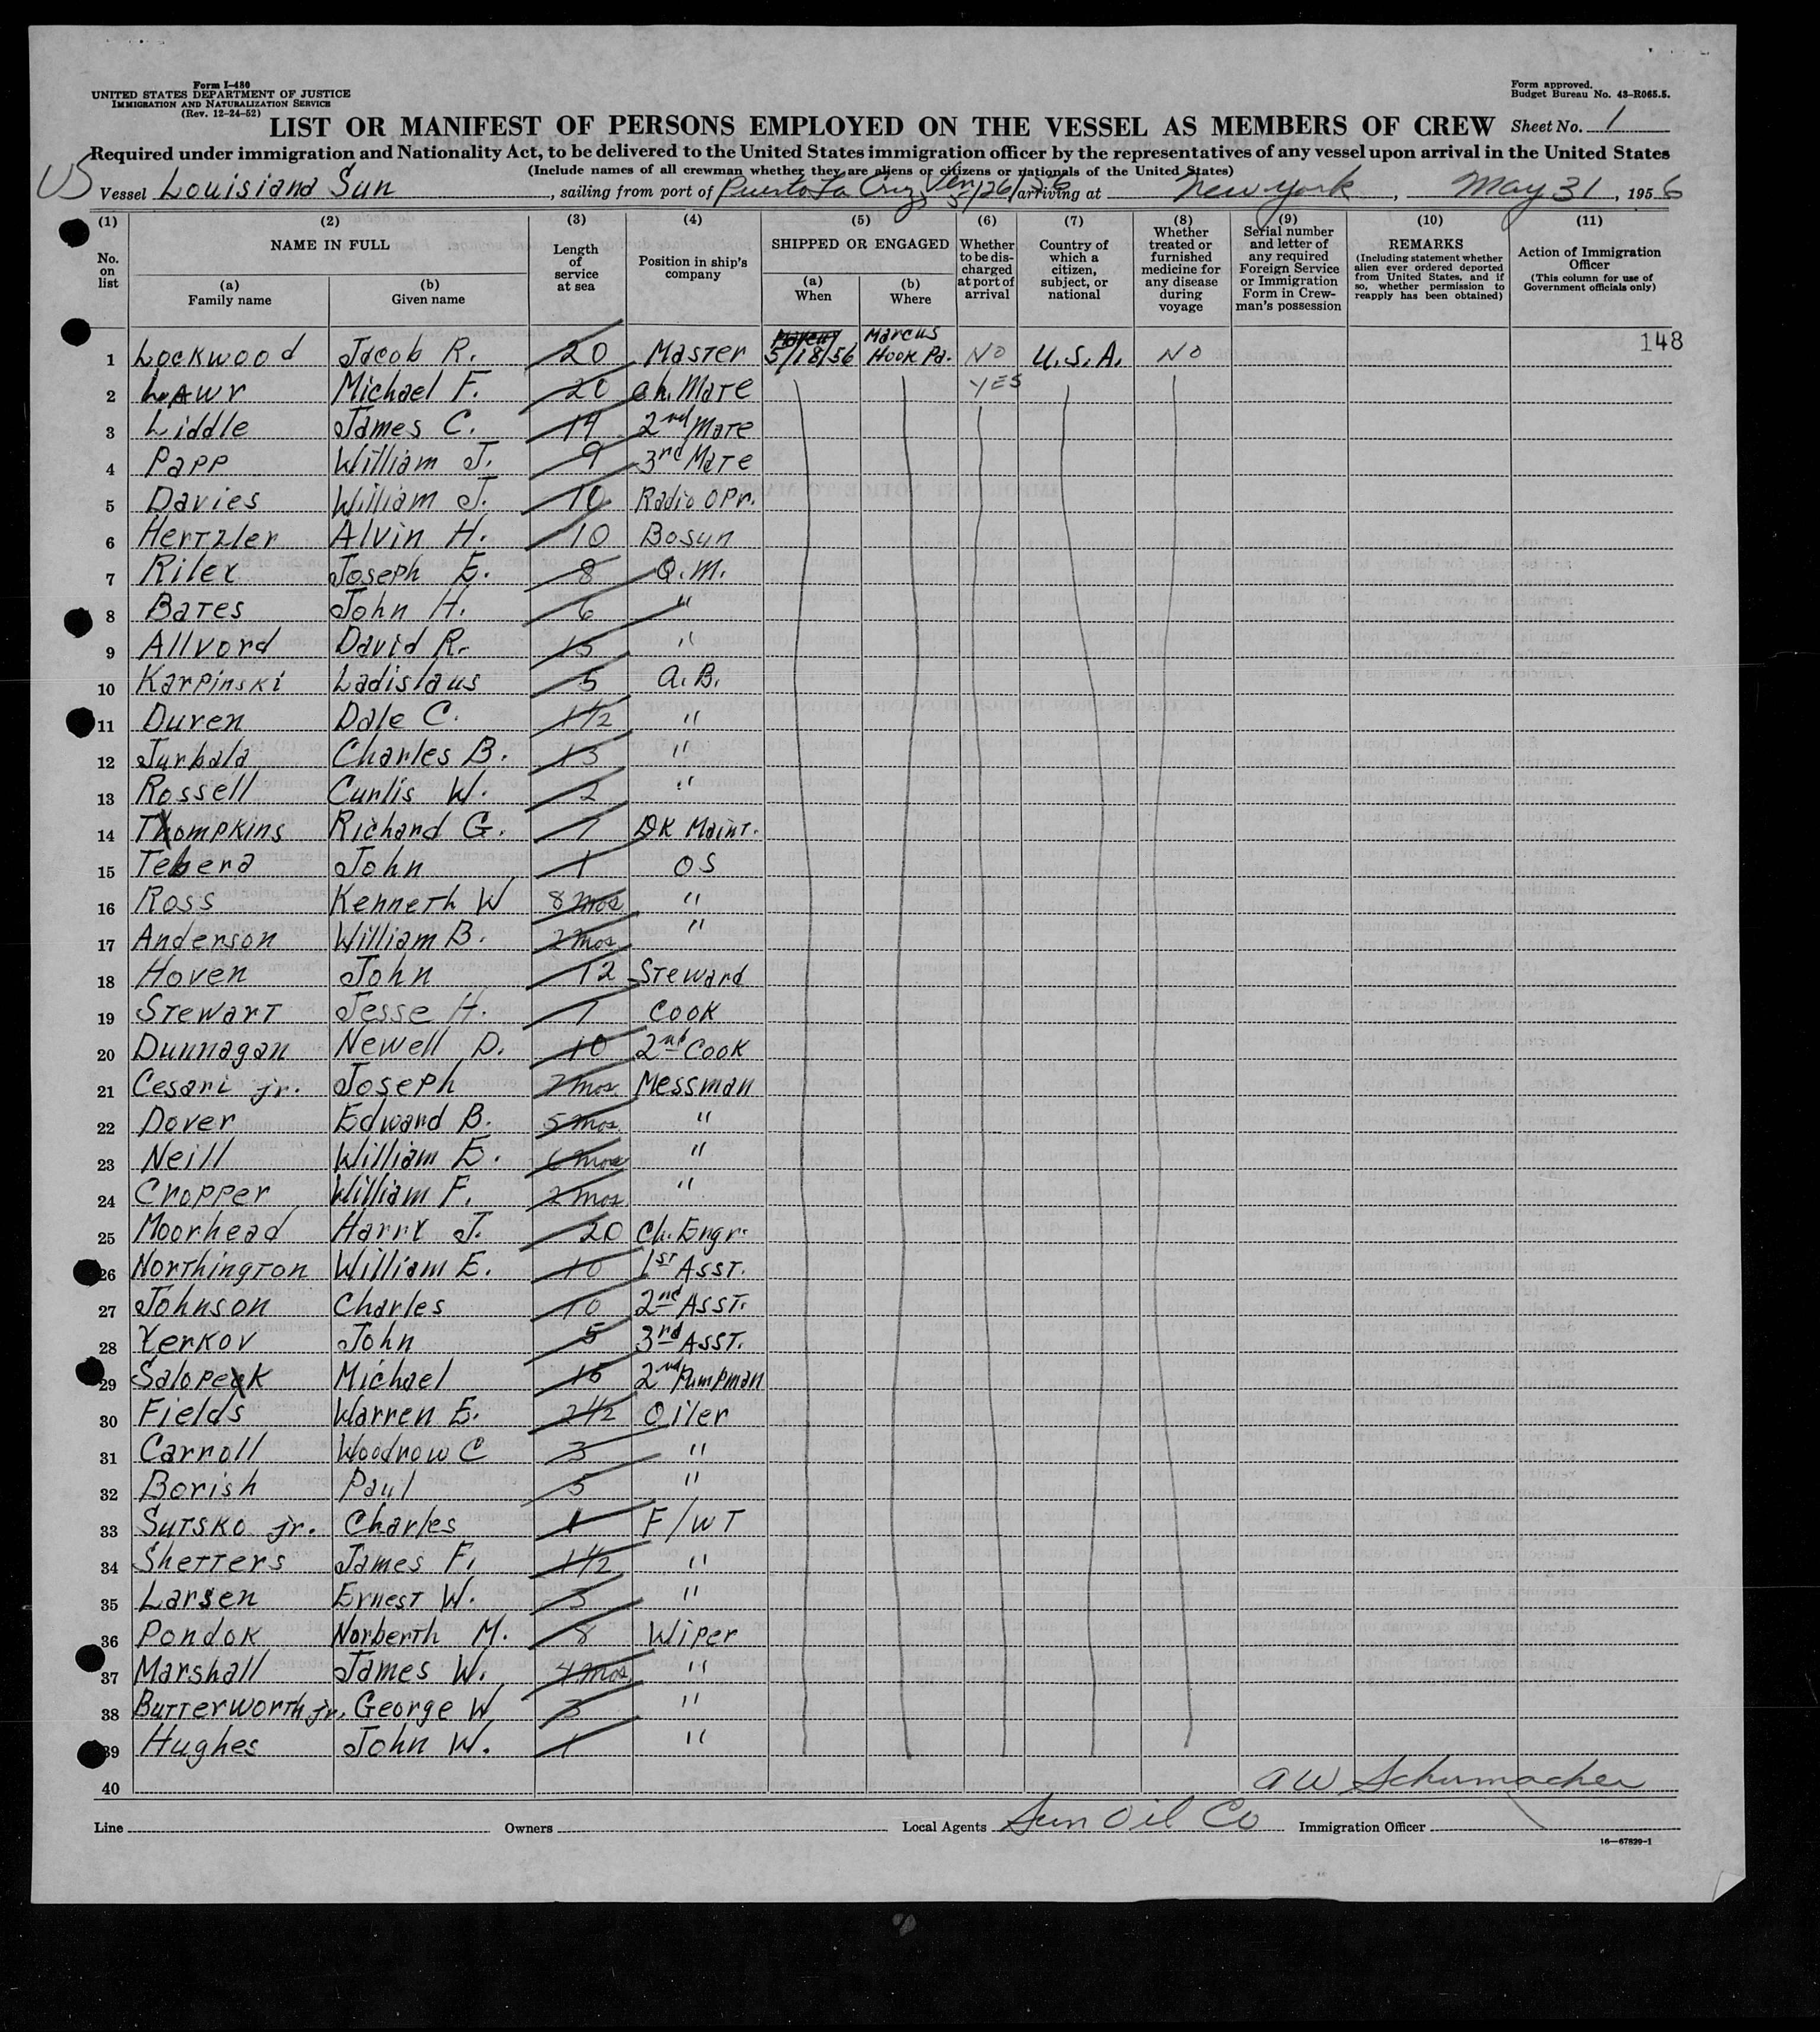 Form I-480
UNITED STATES DEPARTMENT OF JUSTICE
IMMIGRATION AND NATURALIZATION SERVICE
(Rev. 12-24-52)
Form approved.
Budget Bureau No. 43-R065.5.
LIST OR MANIFEST OF PERSONS EMPLOYED ON THE VESSEL AS MEMBERS OF CREW Sheet No. 1
Required under immigration and Nationality Act, to be delivered to the United States immigration officer by the representatives of any vessel upon arrival in the United States
(Include names of all crewman whether they are aliens or citizens or nationals of the United States)
US Vessel Louisiana Sun, sailing from port of Puerto La Cruz, Ven 5/26/56 arriving at New York, May 31, 1956
(1) (2) (3) (4) (5) (6) (7) (8) (9) (10) (11)
No. on list
NAME IN FULL
(a) Family name
(b) Given name
Length of service at sea
Position in ship's company
SHIPPED OR ENGAGED
(a) When
(b) Where
Whether to be discharged at port of arrival
Country of which a citizen, subject, or national
Whether treated or furnished medicine for any disease during voyage
Serial number and letter of any required Foreign Service or Immigration Form in Crewman's possession
REMARKS
(Including statement whether alien ever ordered deported from United States, and if so, whether permission to reapply has been obtained)
Action of Immigration Officer
(This column for use of Government officials only)
148
1 Lockwood Jacob R. 20 Master 5/18/56 Marcus Hook Pa. No U.S.A. No
2 Lawr Michael F. 20 Ch. Mate YES
3 Liddle James C. 14 2nd Mate
4 Papp William J. 9 3rd Mate
5 Davies William J. 10 Radio Opr.
6 Hertzler Alvin H. 10 Bosun
7 Riley Joseph E. 8 Q.M.
8 Bates John H. 6 "
9 Allvord David R. 15 "
10 Karpinski Ladislaus 5 A.B.
11 Duren Dale C. 1 1/2 "
12 Jurbala Charles B. 13 "
13 Rossell Curlis W. 2 "
14 Thompkins Richard G. 7 DK Maint.
15 Tebera John 1 OS
16 Ross Kenneth W 8 mos "
17 Anderson William B. 2 mos "
18 Hoven John 12 Steward
19 Stewart Jesse H. 7 Cook
20 Dunnagan Newell D. 10 2nd Cook
21 Cesari jr. Joseph 7 mos. Messman
22 Dover Edward B. 5 mos. "
23 Neill William E. 6 mos "
24 Cropper William F. 2 mos "
25 Moorhead Harry J. 20 Ch. Engr.
26 Northington William E. 10 1st Asst.
27 Johnson Charles 10 2nd Asst.
28 Yerkov John 5 3rd Asst.
29 Salopek Michael 15 2nd Pumpman
30 Fields Warren E. 2 1/2 Oiler
31 Carroll Woodrow C 3 "
32 Borish Paul 5 "
33 Sutsko jr. Charles 1 F/WT
34 Shetters James F. 1 1/2 "
35 Larsen Ernest W. 3 "
36 Pondok Norberth M. 8 Wiper
37 Marshall James W. 4 mos. "
38 Butterworth jr. George W. 3 "
39 Hughes John W. 1 "
40
AW Schumacher
Line Owners Local Agents Sun Oil Co Immigration Officer
16—67829-1